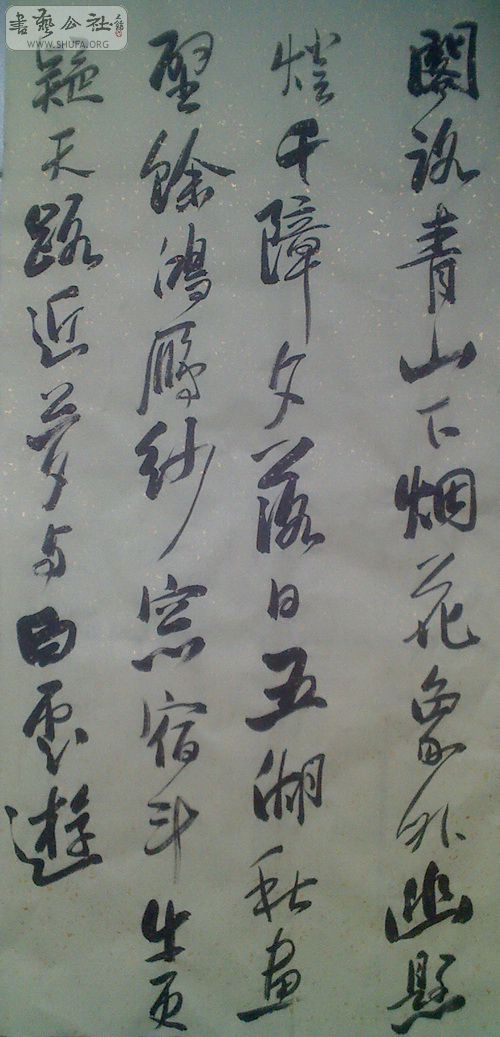 書藝公社
WWW.SHUFA.ORG
閣青山下烟花象外幽懸
燈千障夕落日五湖秋畫
壁餘鴻鴈紗窓宿斗牛更
疑天路近夢与白雲遊